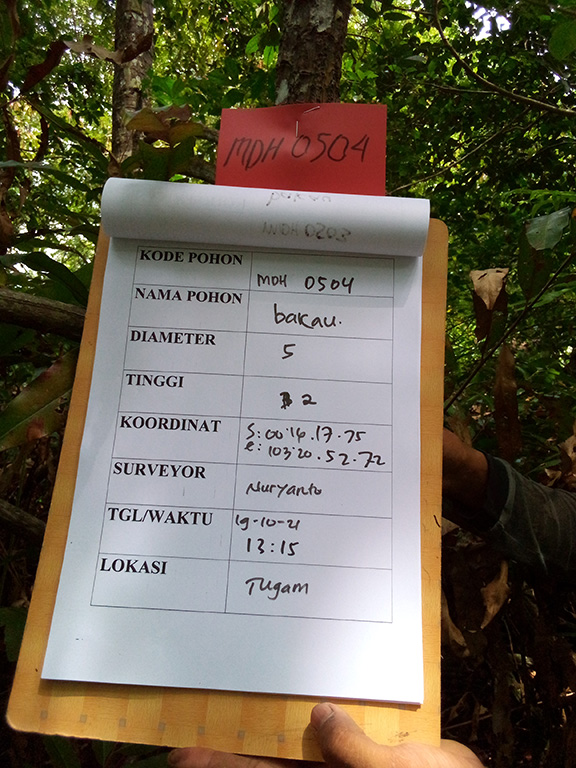 MDH 0504
MDH 0203
KODE POHON MDH 0504
NAMA POHON bakau.
DIAMETER 5
TINGGI 2
KOORDINAT S: 00°16.17.75
e: 103°20.52.72
SURVEYOR Nuryanto
TGL/WAKTU 19-10-21
13:15
LOKASI Tugam